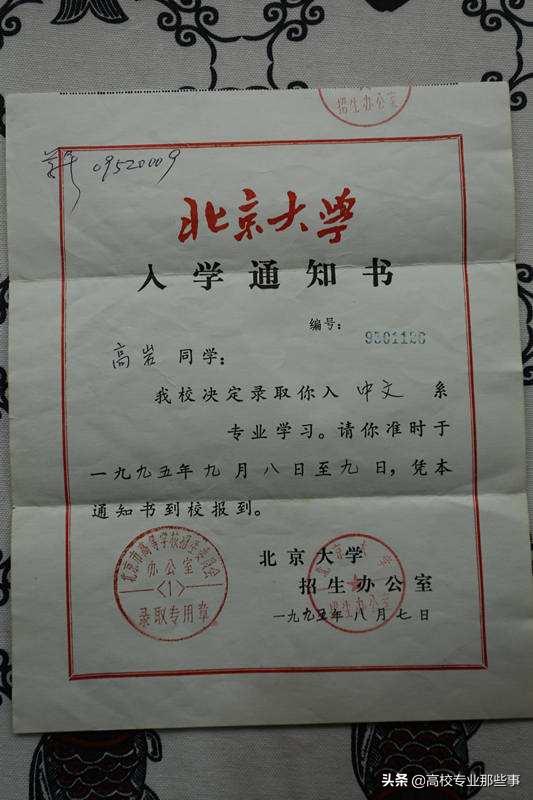 招生办公室
学号 09520009
北京大学
入学通知书
编号: 9501126
高岩 同学:
我校决定录取你入 中文 系
专业学习。请你准时于
一九九五年九月八日至九日,凭本
通知书到校报到。
北京市高等学校招生委员会
办公室
<1>
录取专用章
北京大学
招生办公室
招生办公室
一九九五年八月七日
头条 @高校专业那些事